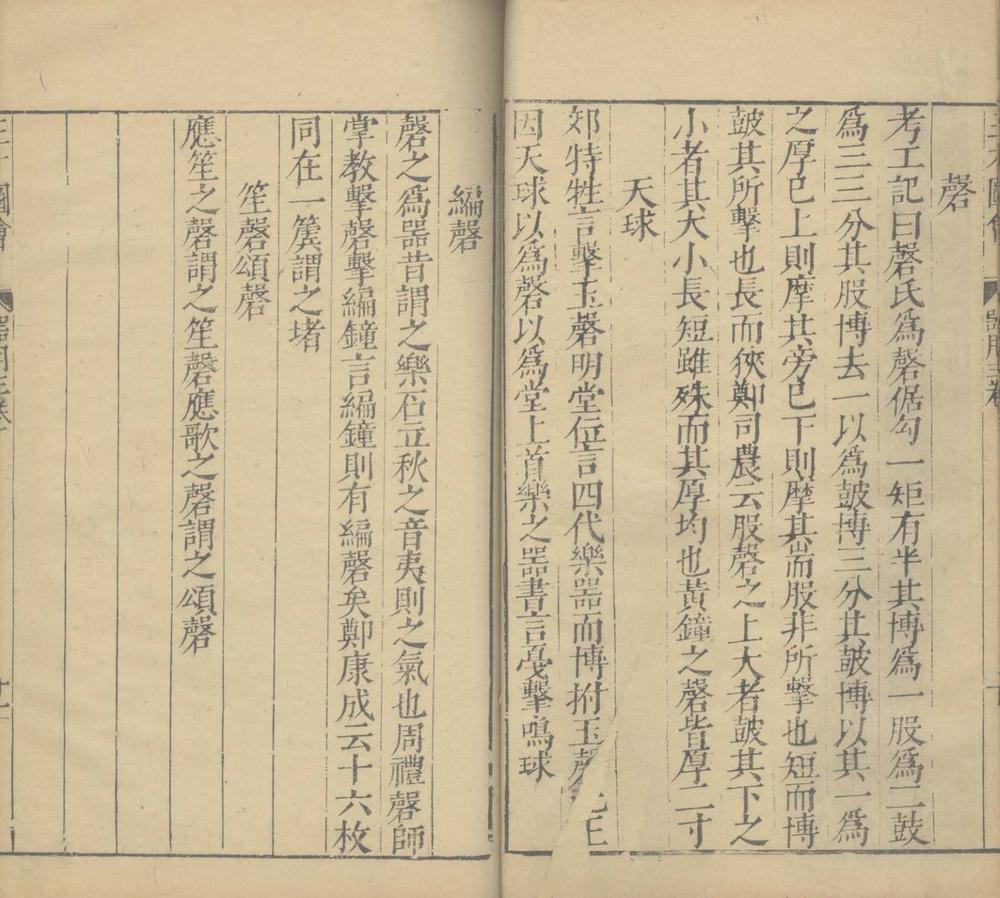 磬
考工記曰磬氏爲磬倨勾一矩有半其博爲一股爲二鼓
爲三三分其股博去一以爲皷博三分其皷博以其一爲
之厚已上則摩其旁已下則摩其耑股非所擊也短而博
皷其所擊也長而狹鄭司農云股磬之上大者皷其下之
小者其大小長短雖殊而其厚均也黃鐘之磬皆厚二寸
天球
郊特牲言擊玉磬明堂位言四代樂器而博拊玉
因天球以爲磬以爲堂上首樂之器書言戞擊鳴球
編磬
磬之爲器昔謂之樂石立秋之音夷則之氣也周禮磬師
掌教擊磬擊編鐘言編鐘則有編磬矣鄭康成云十六枚
同在一簴謂之堵
笙磬頌磬
應笙之磬謂之笙磬應歌之磬謂之頌磬